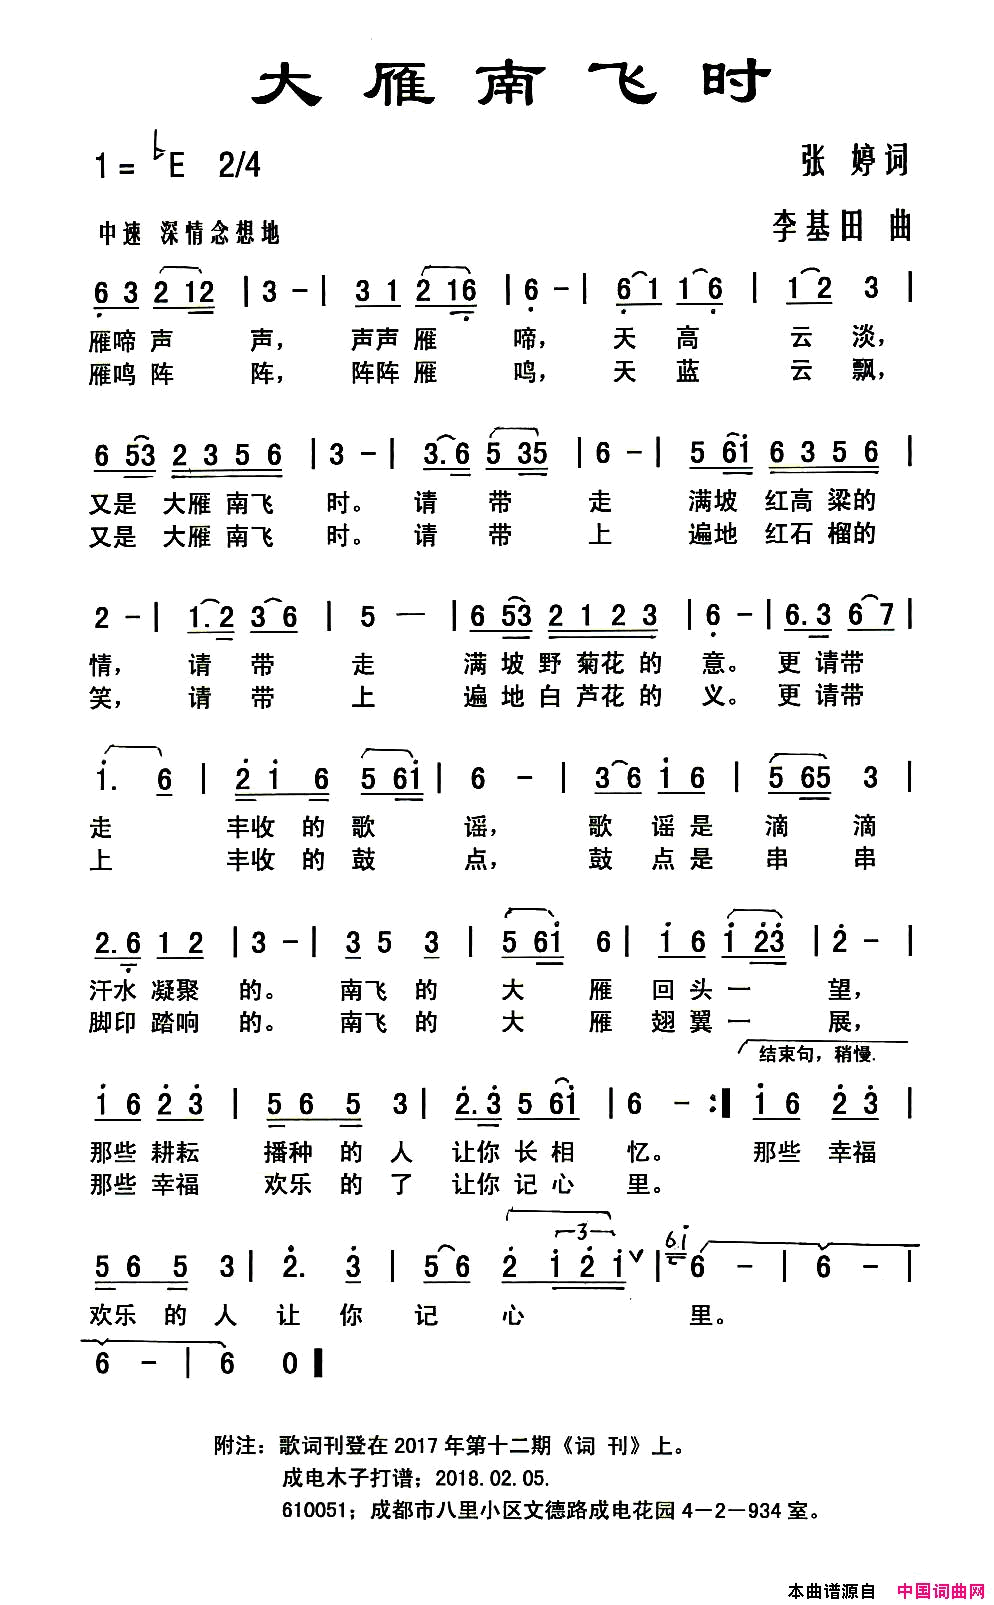 大雁南飞时
1=♭E 2/4
张 婷词
中速 深情念想地
李基田 曲
6 3 2 12 | 3 - | 3 1 2 16 | 6 - | 6 1 1 6 | 1 2 3 |
雁啼 声 声, 声声 雁 啼, 天 高 云 淡,
雁鸣 阵 阵, 阵阵 雁 鸣, 天 蓝 云 飘,
6 53 2 3 5 6 | 3 - | 3. 6 5 35 | 6 - | 5 61 6 3 5 6 |
又是 大雁 南飞 时。 请 带 走 满坡 红高 粱的
又是 大雁 南飞 时。 请 带 上 遍地 红石 榴的
2 - | 1. 2 3 6 | 5 — | 6 53 2 1 2 3 | 6 - | 6. 3 6 7 |
情, 请 带 走 满 坡 野 菊花 的 意。 更 请带
笑, 请 带 上 遍 地 白 芦花 的 义。 更 请带
1. 6 | 2 1 6 5 61 | 6 - | 3 6 1 6 | 5 65 3 |
走 丰收 的 歌 谣, 歌 谣 是 滴 滴
上 丰收 的 鼓 点, 鼓 点 是 串 串
2. 6 1 2 | 3 - | 3 5 3 | 5 61 6 | 1 6 1 23 | 2 - |
汗水 凝聚 的。 南飞 的 大 雁 回 头 一 望,
脚印 踏响 的。 南飞 的 大 雁 翅 翼 一 展,
结束句，稍慢.
1 6 2 3 | 5 6 5 3 | 2. 3 5 61 | 6 - :| 1 6 2 3 |
那些 耕耘 播种 的 人 让你 长 相 忆。 那些 幸福
那些 幸福 欢乐 的 了 让你 记 心 里。
5 6 5 3 | 2. 3 | 5 6 2 3 1 2 1 ∨ | 61 6 - | 6 - |
欢乐 的 人 让 你 记 心 里。
6 - | 6 0 ‖
附注：歌词刊登在2017年第十二期《词 刊》上。
成电木子打谱；2018.02.05.
610051；成都市八里小区文德路成电花园4－2－934室。
本曲谱源自 中国词曲网